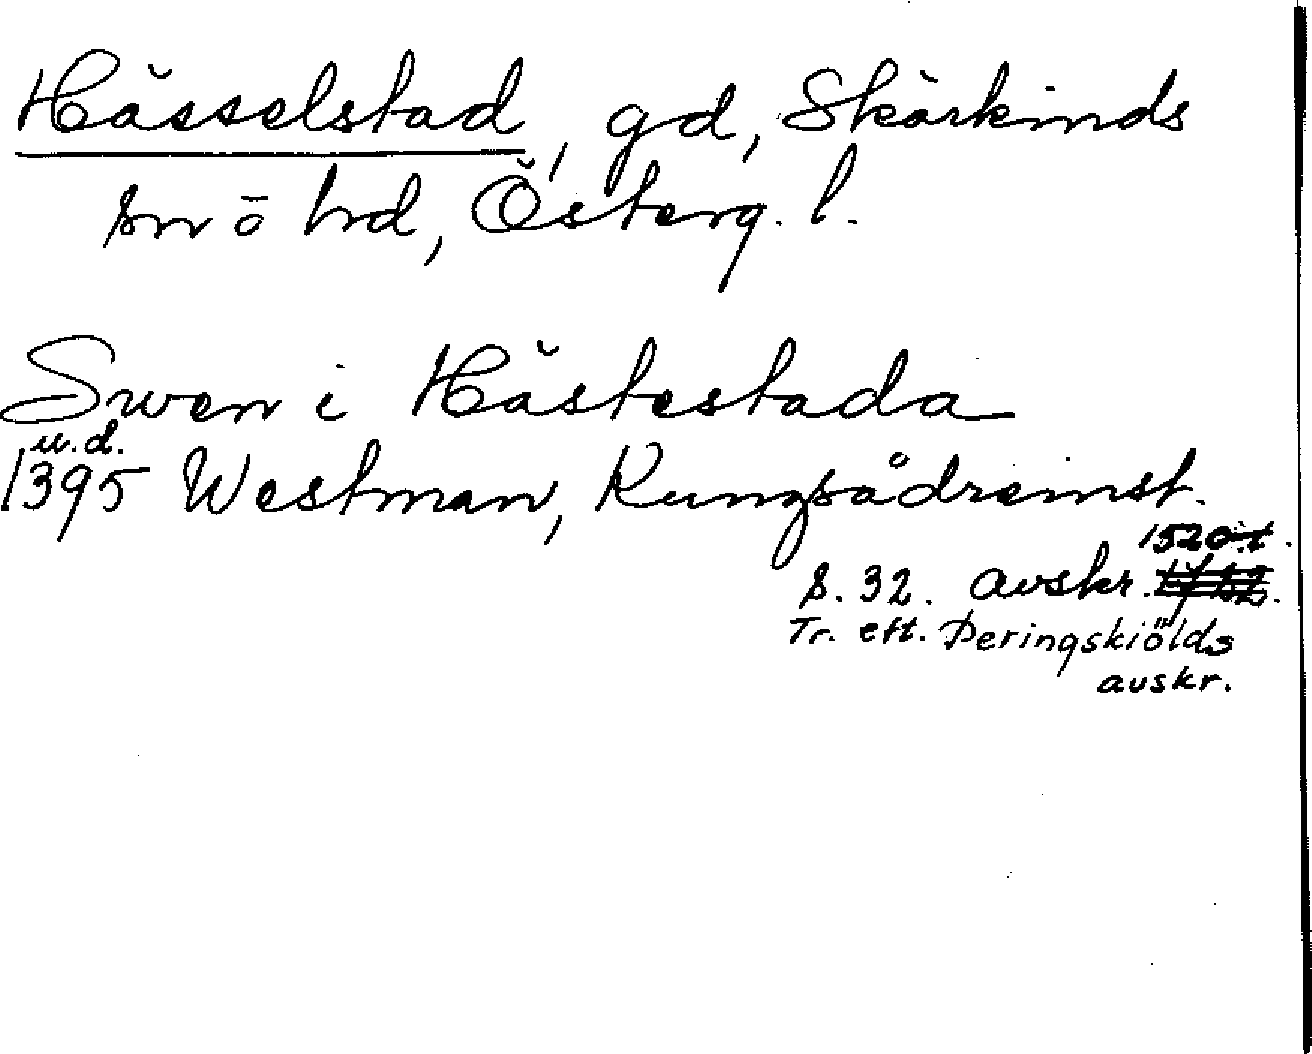 Hässelstad, gd, Skärkinds
sn o hd, Österg. l.
Swen i Hästestada
u.d.
1395 Westman, Kungsådreinst.
1520-t.
s. 32. avskr.
Tr. eft. Peringskiölds
avskr.